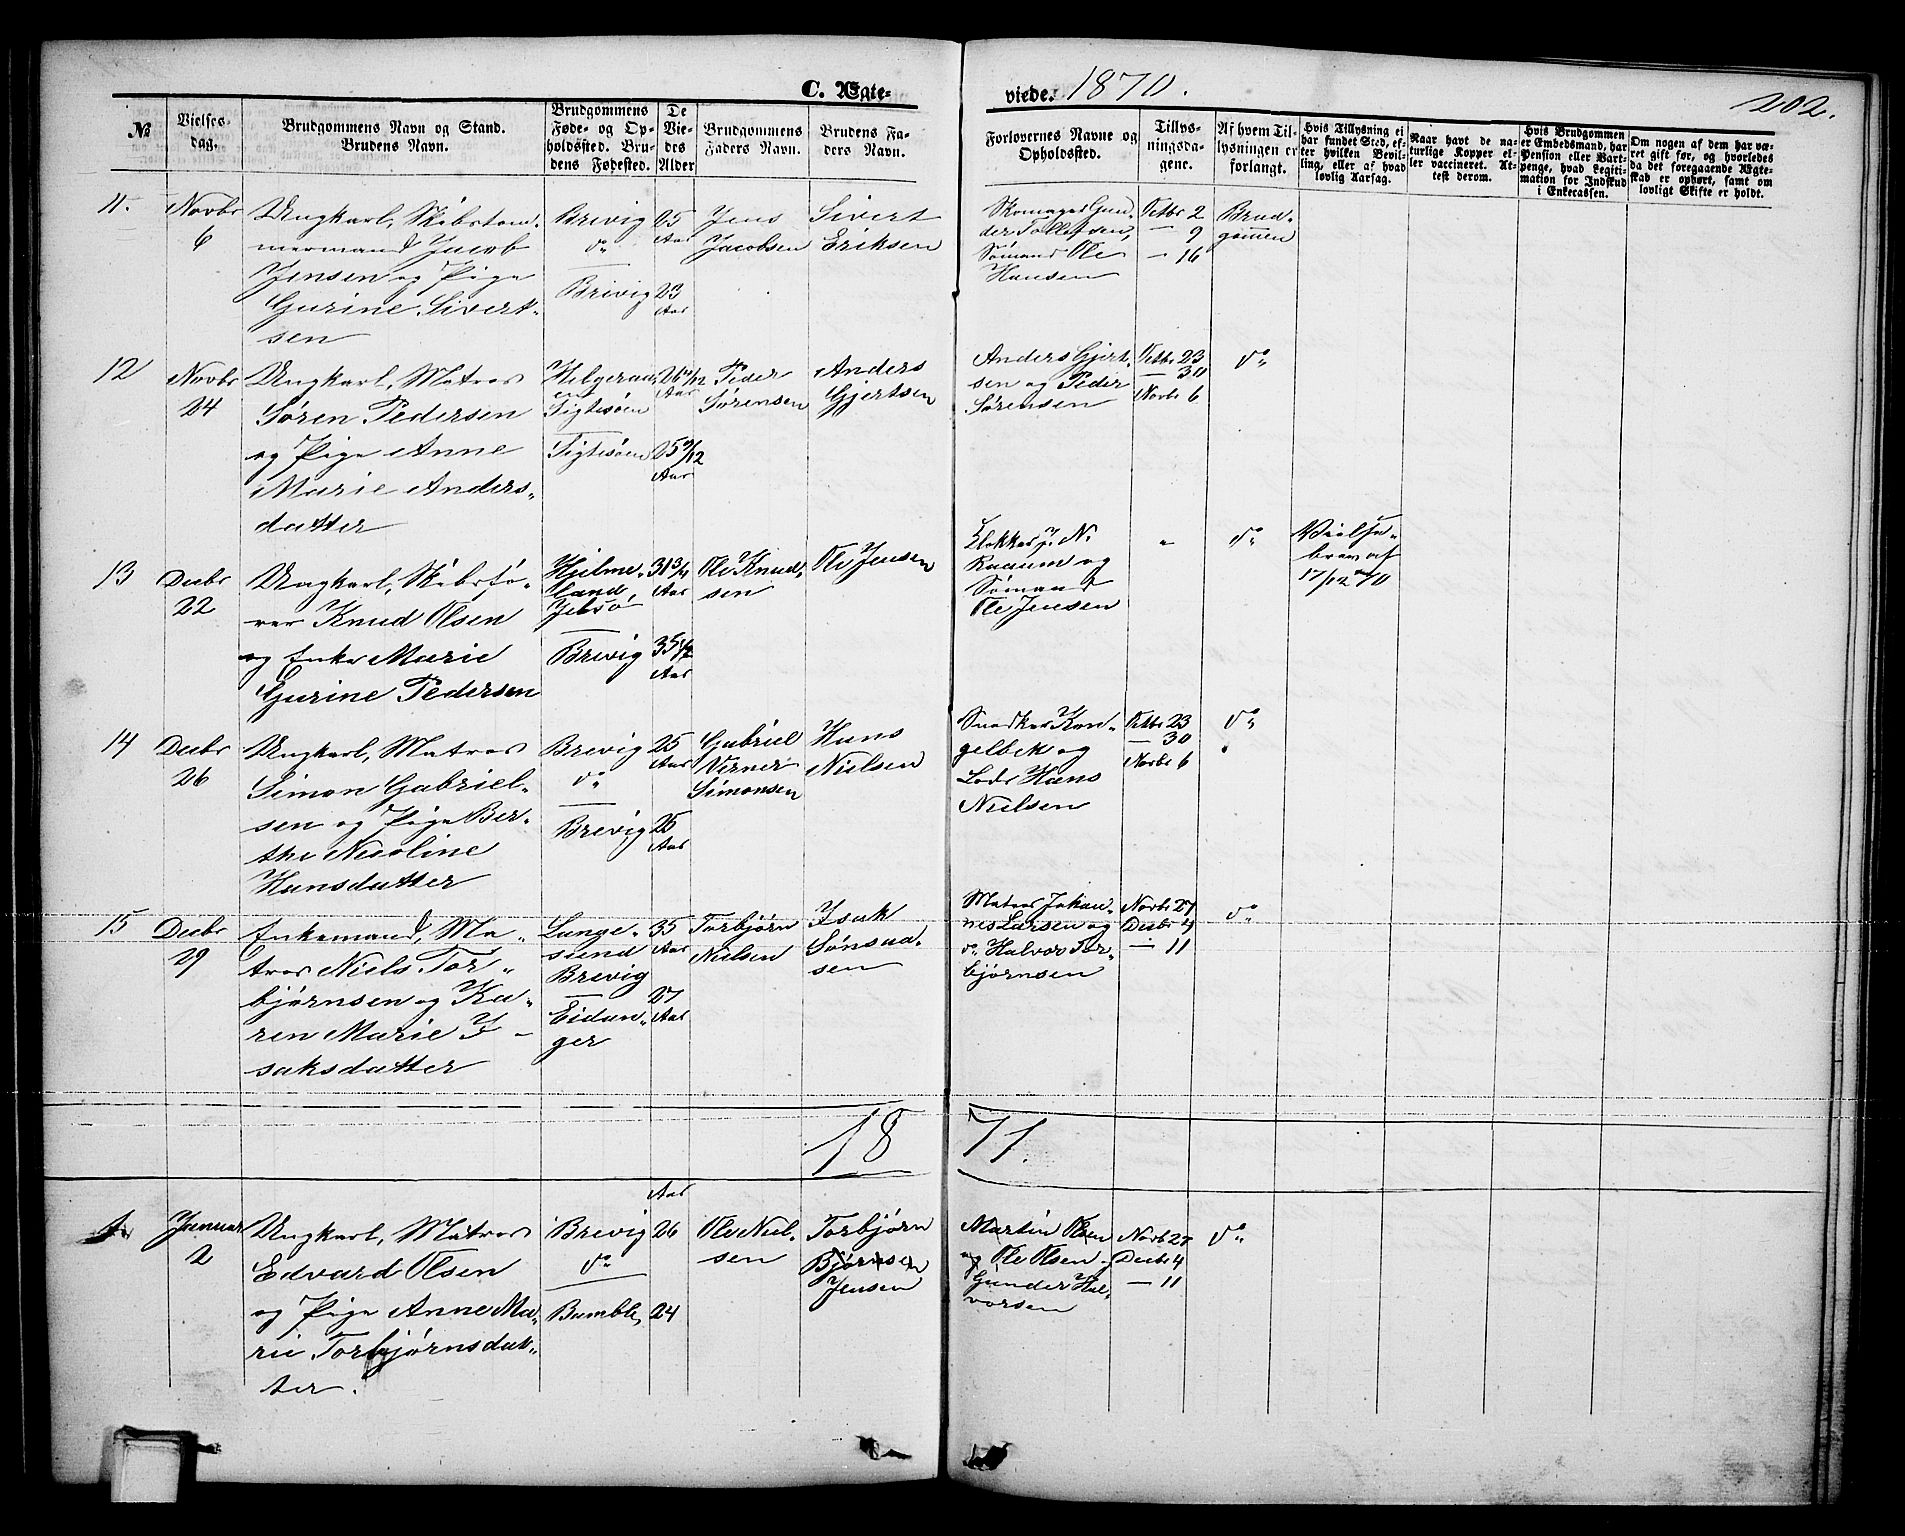 C. Ægte-
viede. 1870.
202.
№
Vielses-
dag.
Brudgommens Navn og Stand.
Brudens Navn.
Brudgommens
Føde- og Op-
holdssted. Bru-
dens Fødested.
De
Vie-
des
Alder
Brudgommens
Faders Navn.
Brudens Fa-
ders Navn.
Forlovernes Navne og
Opholdssted.
Tillys-
ningsda-
gene.
Af hvem Til-
lysningen er
forlangt.
Hvis Tillysning ei
har fundet Sted, ef-
ter hvilken Bevil-
ling, eller af hvad
lovlig Aarsag.
Naar havt de na-
turlige Kopper el-
ler vaccineret. At-
test derom.
Hvis Brudgommen
er Embedsmand, har
Pension eller Vart-
penge, hvad Legiti-
mation for Indskud
i Enkecassen.
Om nogen af dem har væ-
ret gift før, og hvorledes
da det foregaaende Ægte-
skab er ophørt, samt om
lovligt Skifte er holdt.
11.
Novbr
6
Ungkarl, Skibstøm-
mermand Jacob
Jensen og Pige
Gurine Sivert-
sen
Brevig
do
Brevig
25
Aar
23
Aar
Jens
Jacobsen
Sivert
Eriksen
Skomager Gun-
der Tollefsen,
Sømand Ole
Hansen
Octbr 2
— 9
— 16
Brud-
gommen
12
Novbr
24
Ungkarl, Matros
Søren Pedersen
og Pige Anne
Marie Anders-
datter
Helgeraa
Sigtesøen
Sigtesøen
Aar
Aar
Peder
Sørensen
Anders
Gjertsen
Anders Gjert-
sen og Peder
Sørensen
Octbr 23
— 30
Novbr 6
do
13
Decbr
22
Ungkarl, Skibsfø-
rer Knud Olsen
og Enke Marie
Gurine Pedersen
Hjelme-
land,
Jelsø
Brevig
31 3/4
Aar
35 1/2
Aar
Ole Knud-
sen
Ole Jensen
Klokker J. N.
Raaum og
Sømand
Ole Jensen
"
do
Vielse-
brev af
17/12 70
14
Decbr
26
Ungkarl, Matros
Simon Gabriel-
sen og Pige Ber-
the Nicoline
Hansdatter
Brevig
do
Brevig
25
Aar
25
Aar
Gabriel
Verner
Simonsen
Hans
Nielsen
Snedker Kon-
gelbek og
Lods Hans
Nielsen
Octbr 23
— 30
Novbr 6
do
15
Decbr
29
Enkemand, Ma-
tros Niels Tor-
bjørnsen og Ka-
ren Marie I-
saksdatter
Lange-
sund
Brevig
Eidan-
ger
35
Aar
27
Aar
Torbjørn
Nielsen
Isak
sen
Matros Johan-
nes Larsen og
do Halvor Tor-
bjørnsen
Novbr 27
Decbr 4
— 11
do
1871.
1.
Januar
2
Ungkarl, Matros
Edvard Olsen
og Pige Anne Ma-
rie Torbjørnsdat-
ter.
Brevig
do
Bamble
Aar
26
24
Ole Niel-
sen
Torbjørn
Bjørnsen
Jensen
Martin Olsen
og Ole Olsen
Gunder Hal-
vorsen
Novbr 27
Decbr 4
— 11
do